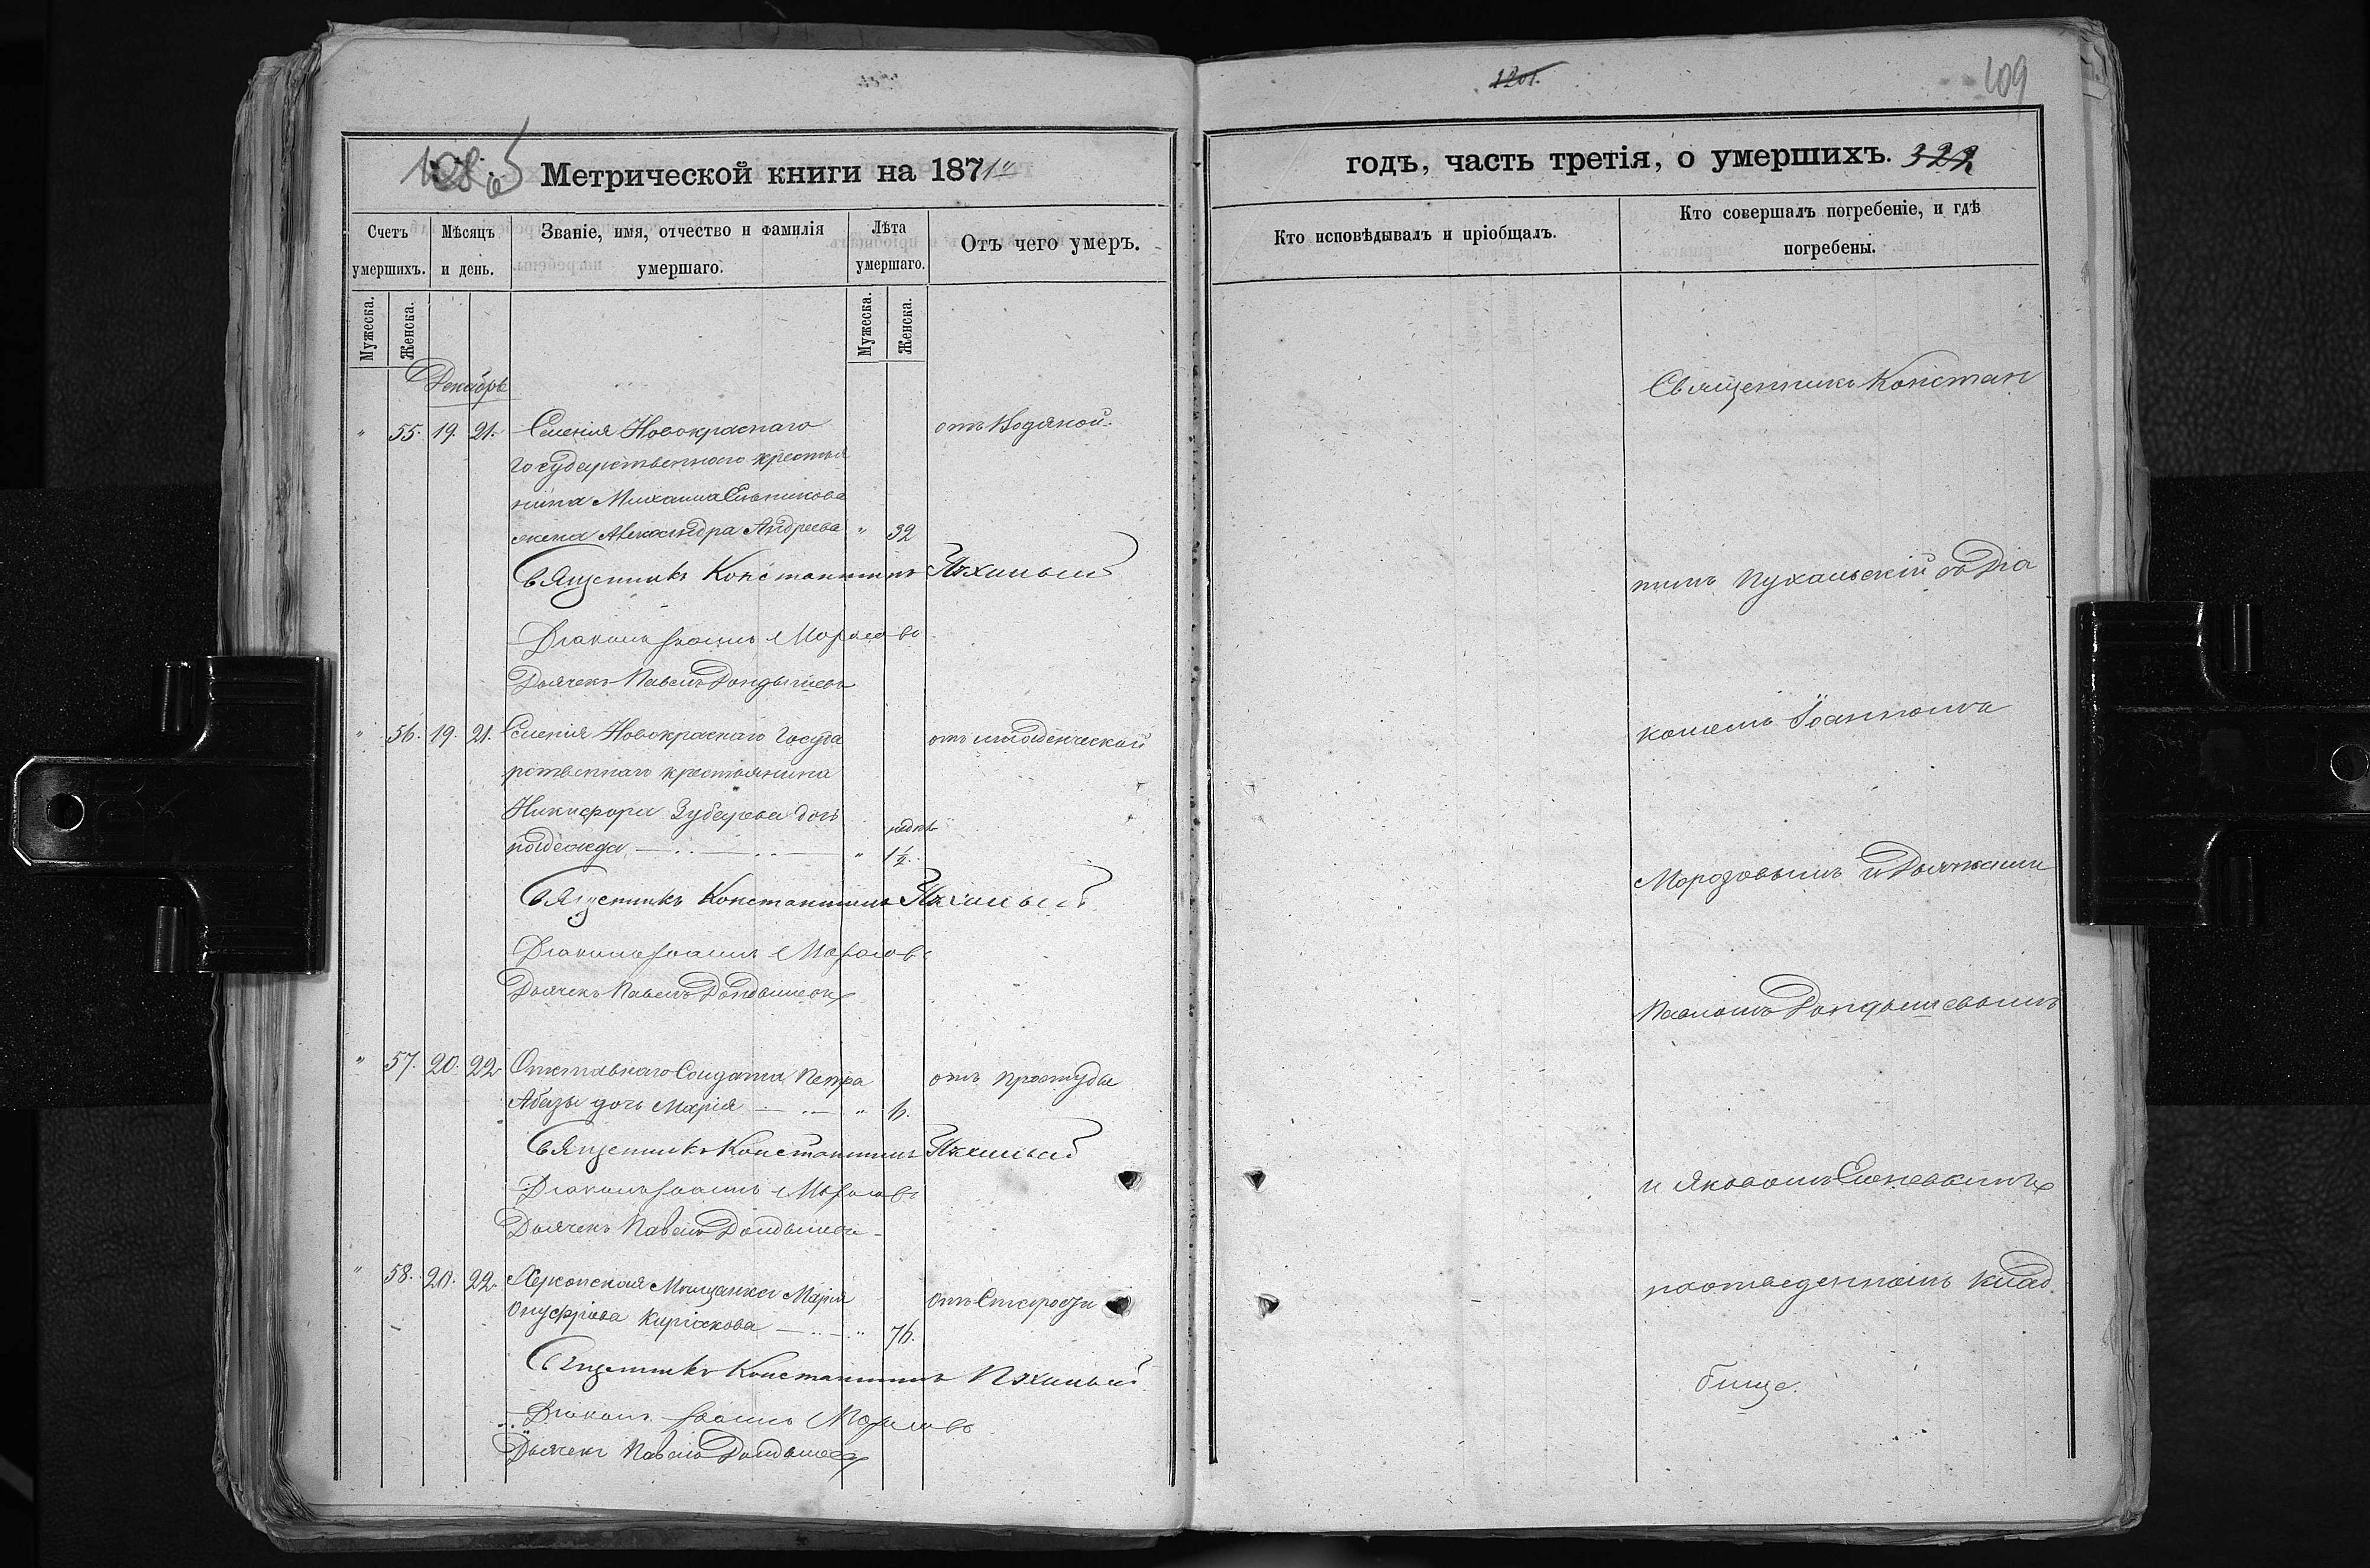 Метрической книги на 1871й
Счетъ умершихъ.
Мѣсяцъ и день.
Званіе, имя, отчество и фамилія умершаго.
Лѣта умершаго.
Отъ чего умеръ.
Мужеска.
Женска.
Мужеска.
Женска.
Декабрь
" 55. 19. 21. Селенія Новокраснаго отъ Водяной.
государственнаго крестья
нина Михаила
жена Александра Андреева " 32
Священникъ Константинъ
Діаконъ Іоаннъ Морозовъ
Дьячекъ Павелъ Дондышевъ
" 56. 19. 21. Селенія Новокраснаго Госуда отъ младенческой
рственнаго крестьянина
Никифора Зубарева дочь
надежда 1½
Священникъ Константинъ
Діаконъ Іоаннъ Морозовъ
Дьячекъ Павелъ Дондышевъ
" 57. 20. 22. Отставнаго Солдата Петра отъ простуды
Абазы дочь Марія " 6.
Священникъ Константинъ
Діаконъ Іоаннъ Морозовъ
Дьячекъ Павелъ Дондышевъ
" 58. 20. 22. Херсонская Мѣщанка Марія отъ Старости
Онуфріева Киріякова " 76.
Священникъ Константинъ
Діаконъ Іоаннъ Морозовъ
Дьячекъ Павелъ Дондышевъ
1201.
109
годъ, часть третія, о умершихъ. 322
Кто исповѣдывалъ и пріобщалъ.
Кто совершалъ погребеніе, и гдѣ погребены.
Священникъ Констан
тинъ Пухальскій съ Діа
кономъ Іоанномъ
Морозовымъ и Дьячками
Павломъ Дондышевымъ
и Яковомъ
на отведенномъ клад
бище.